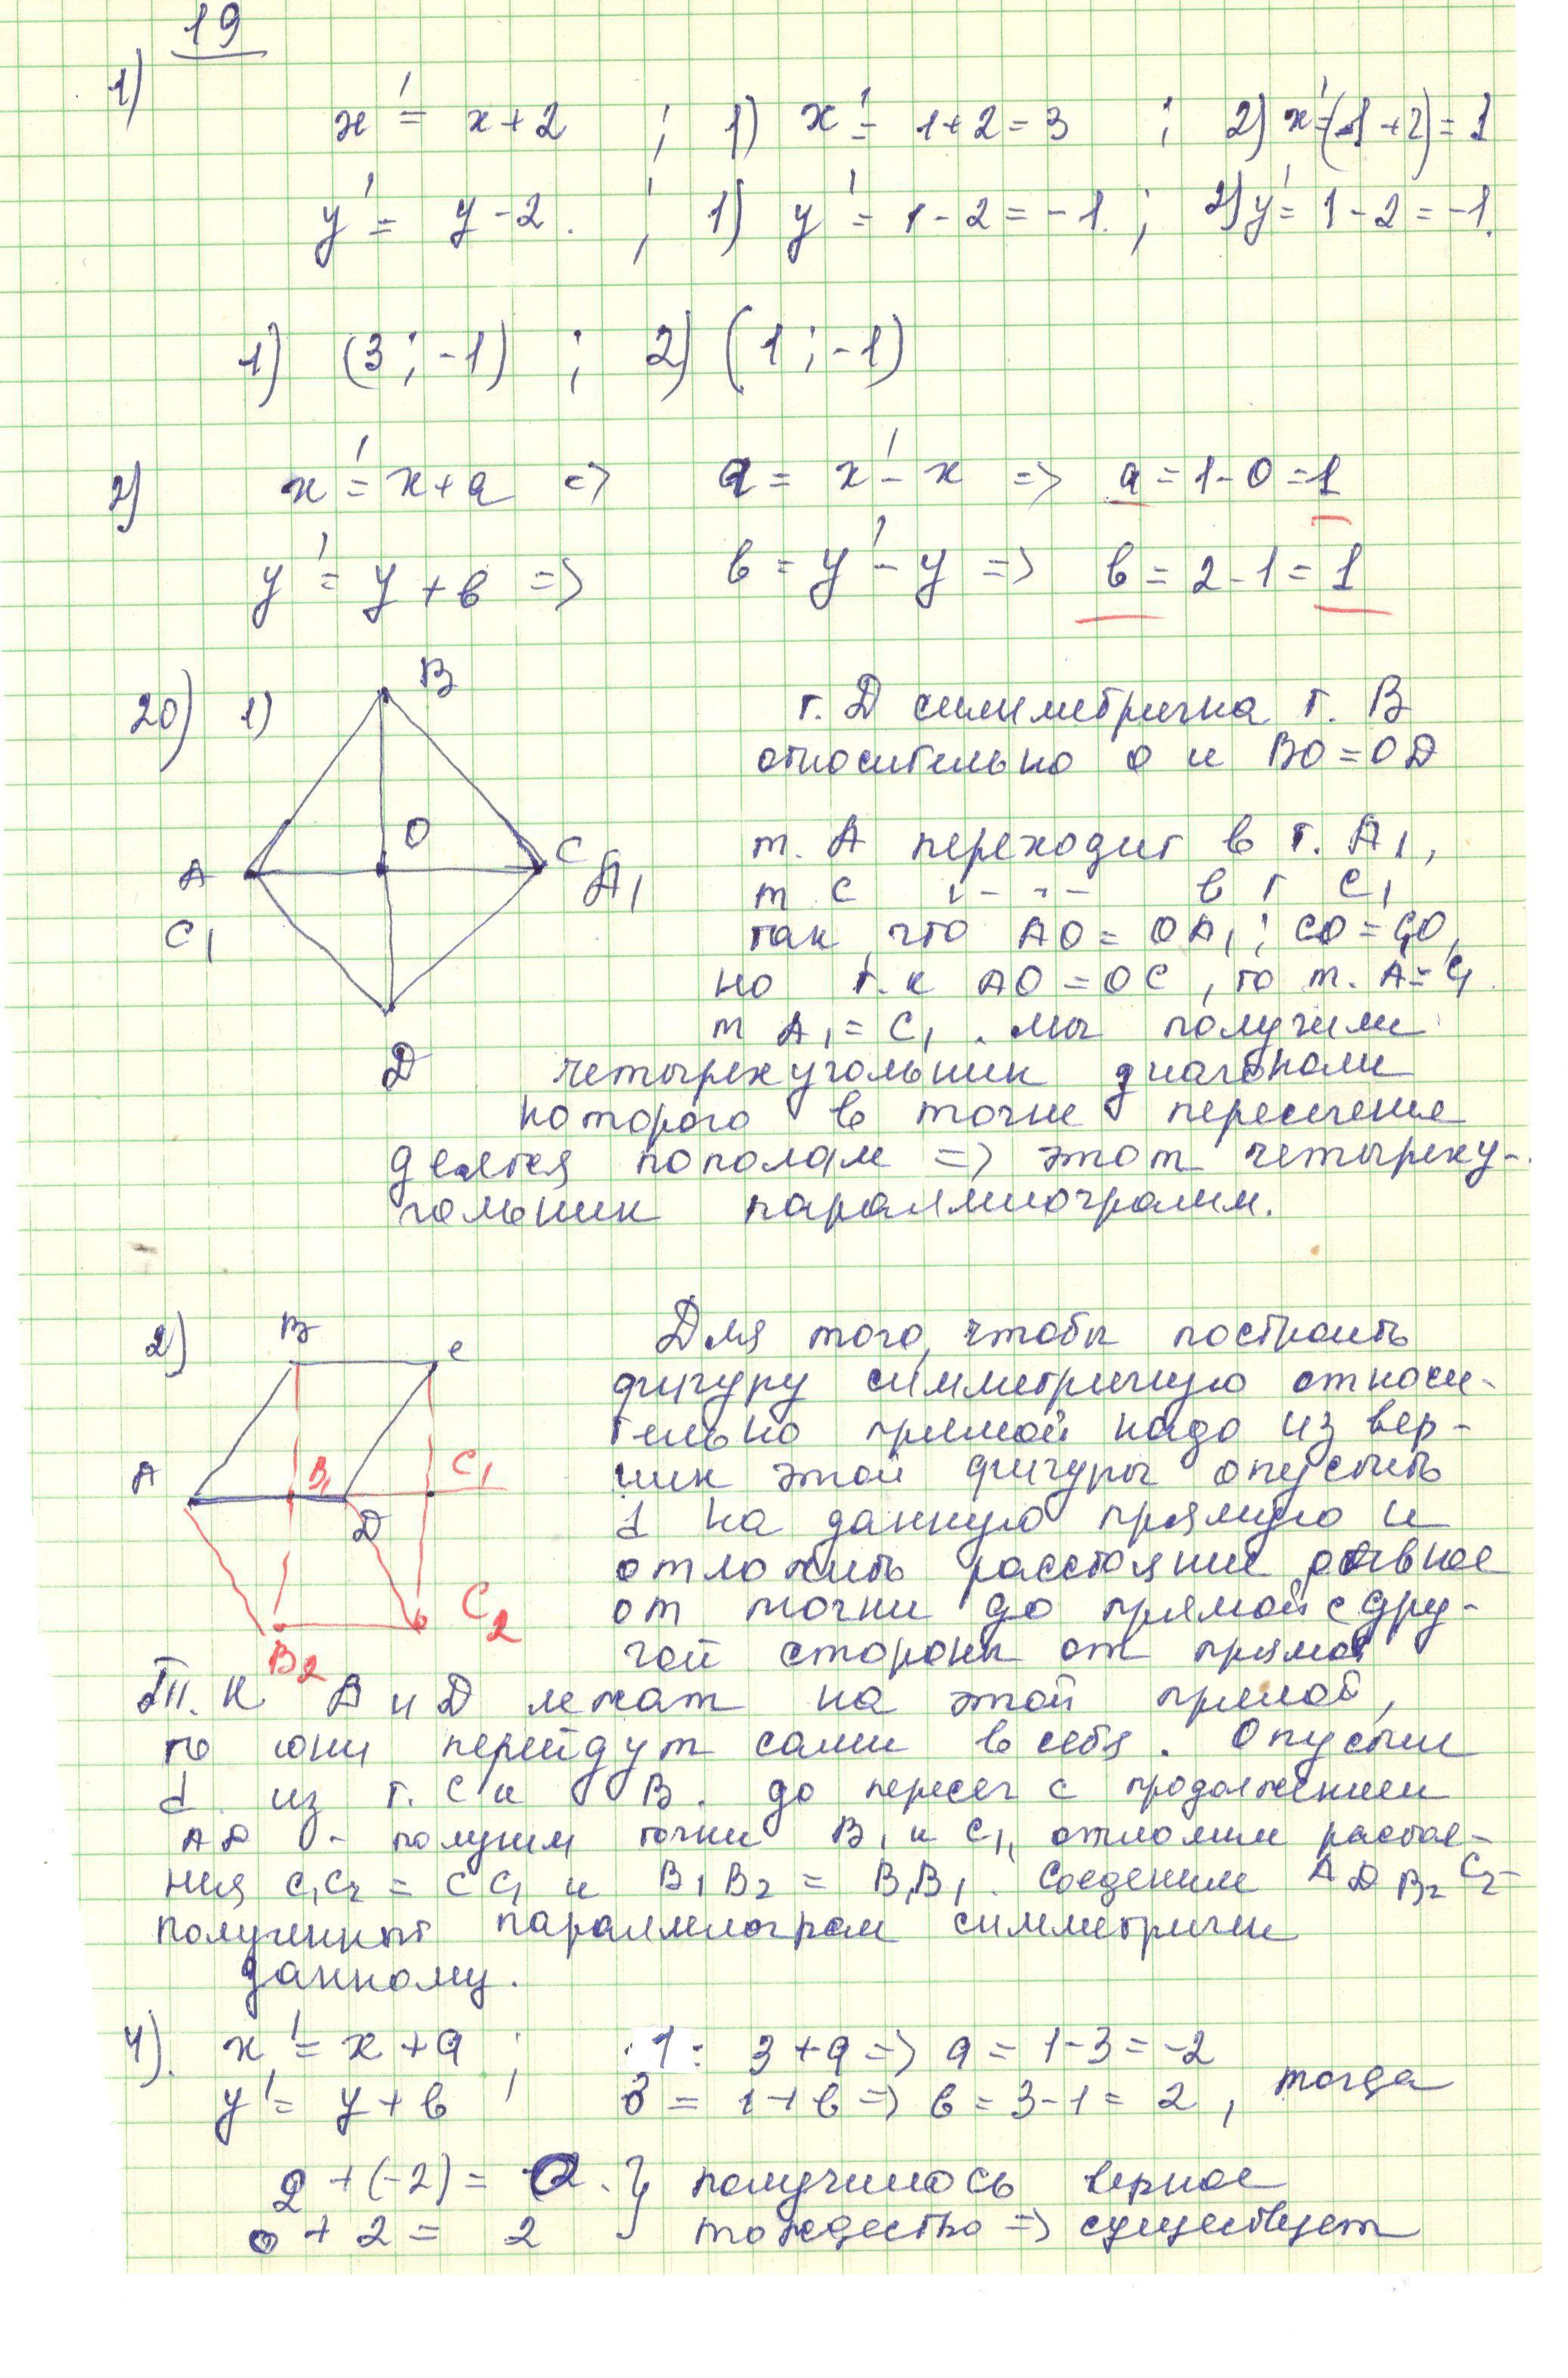 19
1)
x' = x+2 ; 1) x' = 1+2=3 ; 2) x'=(-1+2)=1
y' = y-2. ; 1) y' = 1-2=-1. ; 2) y' = 1-2=-1.
1) (3;-1) ; 2) (1;-1)
2) x' = x+a => a = x'-x => a = 1-0=1
y' = y+в => в = y'-y => в = 2-1=1
20) 1) B
т. D симметрична т. B
относительно O и BO=OD
O
A C A1
C1
D
т. A переходит в т. A1,
т C -"- в т C1
так что AO = OA1; CO = C1O,
но т.к AO = OC, то т. A=C1
т A1 = C1. мы получим
четырехугольник диагонали
которого в точке пересечения
делятся пополам => этот четыреху-
гольник параллелограмм.
2) B C
A B1 C1
D
B2 C2
Для того, чтобы построить
фигуру симметричную относи-
тельно прямой надо из вер-
шин этой фигуры опустить
⊥ на данную прямую и
отложить расстояние равное
от точки до прямой с дру-
гой стороны от прямой
Т.к A и D лежат на этой прямой,
то они перейдут сами в себя. Опустим
⊥ из т. C и B. до пересеч с продолжением
AD - получим точки B1 и C1, отложим расстоя-
ния C1C2 = CC1 и B1B2 = BB1. Соеденим A D B2 C2-
полученный параллелограм симметричен
данному.
4). x' = x+a ; 1 = 3+a => a = 1-3=-2
y' = y+в ; 3 = 1+в => в = 3-1 = 2, тогда
2+(-2) = 0. } получилось верное
0+2 = 2 } тождество => существует